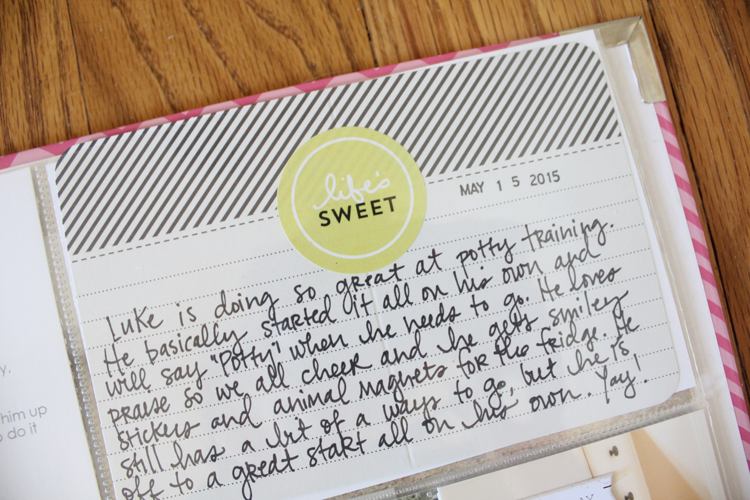 life's
SWEET
MAY 15 2015
Luke is doing so great at potty training.
He basically started it all on his own and
will say "Potty" when he needs to go. He loves
praise so we all cheer and he gets smiley
stickers and animal magnets for the fridge. He
still has a bit of a ways to go, but he is
off to a great start all on his own. Yay!
y.
him up
do it
AY